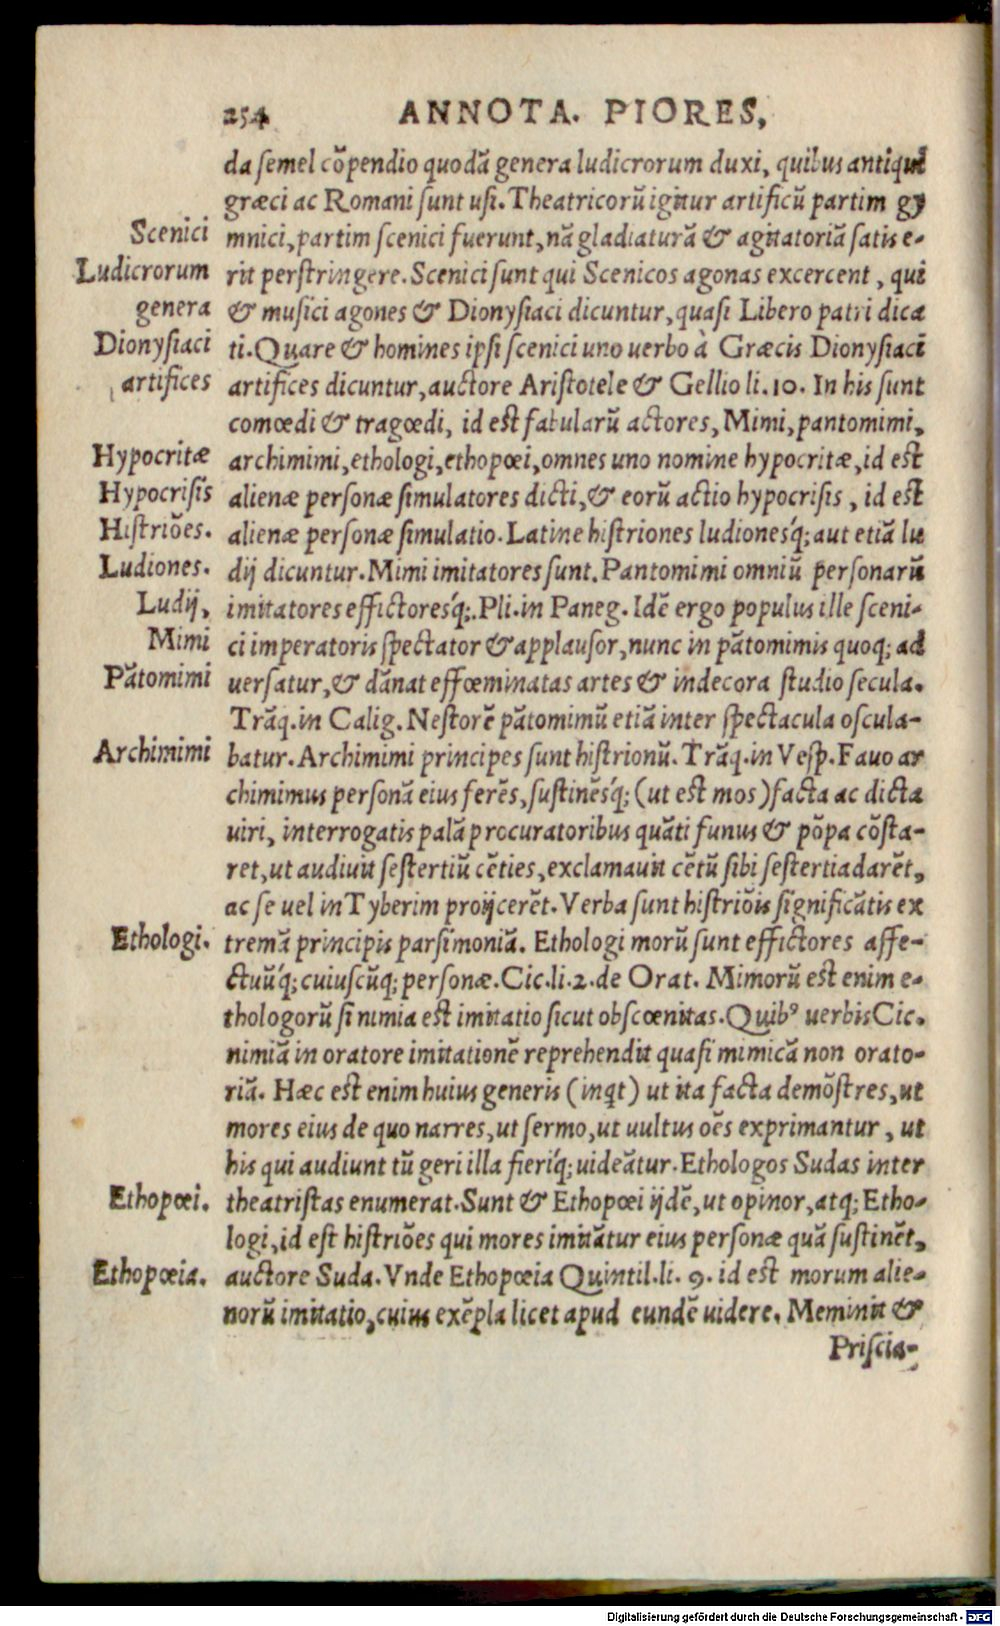 254 ANNOTA. PIORES,
da semel cōpendio quodā genera ludicrorum duxi, quibus antiqui
græci ac Romani sunt usi. Theatricorū igitur artificū partim gy
Scenici
mnici, partim scenici fuerunt, nā gladiaturā & agitatoriā satis e-
Ludicrorum
rit perstringere. Scenici sunt qui Scenicos agonas excercent, qui
genera
& musici agones & Dionysiaci dicuntur, quasi Libero patri dica
Dionysiaci
ti. Quare & homines ipsi scenici uno uerbo à Græcis Dionysiaci
artifices
artifices dicuntur, auctore Aristotele & Gellio li. 10. In his sunt
comœdi & tragœdi, id est fabularū actores, Mimi, pantomimi,
Hypocritæ
archimimi, ethologi, ethopœi, omnes uno nomine hypocritæ, id est
Hypocrisis
alienæ personæ simulatores dicti, & eorū actio hypocrisis, id est
Histriōes.
alienæ personæ simulatio. Latine histriones ludionesq́; aut etiā lu
Ludiones.
dij dicuntur. Mimi imitatores sunt. Pantomimi omniū personarū
Ludij,
imitatores effictoresq́;. Pli. in Paneg. Idē ergo populus ille sceni-
Mimi
ci imperatoris spectator & applausor, nunc in pātomimis quoq; ad
Pātomimi
uersatur, & dānat effœminatas artes & indecora studio secula.
Trāq. in Calig. Nestorē pātomimū etiā inter spectacula oscula-
Archimimi
batur. Archimimi principes sunt histrionū. Trāq. in Vesp. Fauo ar
chimimus personā eius ferēs, sustinēsq́; (ut est mos) facta ac dicta
uiri, interrogatis palā procuratoribus quāti funus & pōpa cōsta-
ret, ut audiuit sestertiū cēties, exclamauit cētū sibi sestertia darēt,
ac se uel in Tyberim proijcerēt. Verba sunt histriōis significātis ex
Ethologi.
tremā principis parsimoniā. Ethologi morū sunt effictores affe-
ctuūq́; cuiuscūq; personæ. Cic. li. 2. de Orat. Mimorū est enim e-
thologorū si nimia est imitatio sicut obscœnitas. Quibꝰ uerbis Cic.
nimiā in oratore imitationē reprehendit quasi mimicā non orato-
riā. Hæc est enim huius generis (inqt) ut ita facta demōstres, ut
mores eius de quo narres, ut sermo, ut uultus oēs exprimantur, ut
his qui audiunt tū geri illa fieriq́; uideātur. Ethologos Sudas inter
Ethopœi.
theatristas enumerat. Sunt & Ethopœi ijdē, ut opinor, atq; Etho-
logi, id est histriōes qui mores imitātur eius personæ quā sustinēt,
Ethopœia.
auctore Suda. Vnde Ethopœia Quintil. li. 9. id est morum alie-
norū imitatio, cuius exēpla licet apud eundē uidere. Meminit &
Priscia-
Digitalisierung gefördert durch die Deutsche Forschungsgemeinschaft - DFG